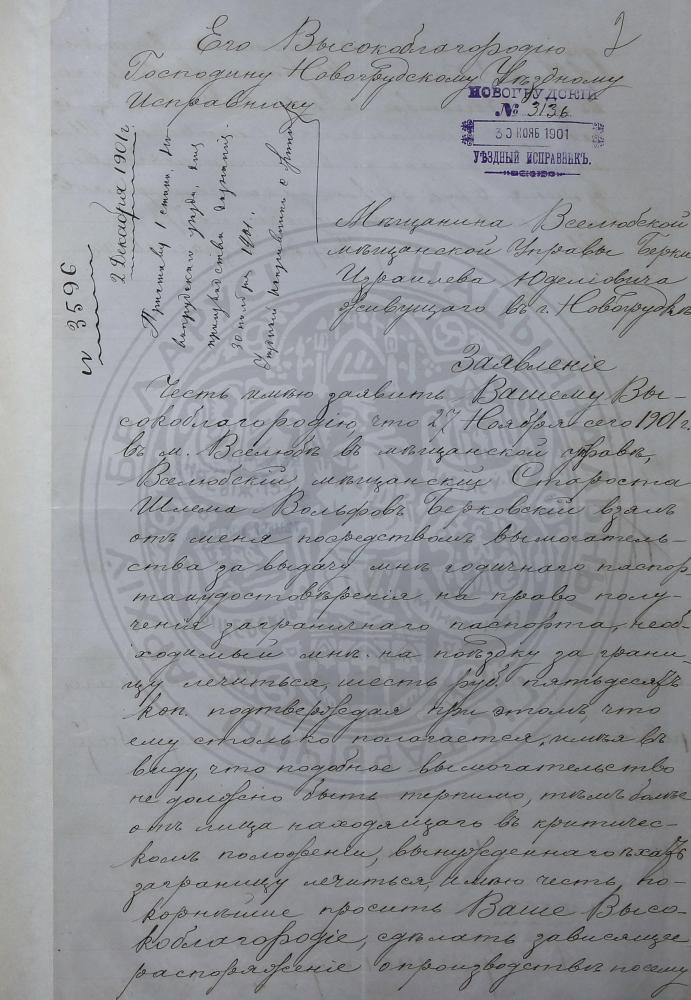 2
Его Высокоблагородію
Господину Новогрудскому Уѣздному
Исправнику
НОВОГРУДСКІЙ
№ 3136
30 НОЯБ 1901
УѢЗДНЫЙ ИСПРАВНИКЪ.
2 Декабря 1901 г.
№ 3596
Приставу 1 стана, Но-
вогрудскаго уѣзда, для
производства дознанія.
30 ноября 1901.
Уѣздный Исправникъ
Мѣщанина Вселюбской
мѣщанской Управы Берки
Израилева Юделіовича
живущаго въ г. Новогрудкѣ
Заявленіе
Честь имѣю заявить Вашему Вы-
сокоблагородію, что 27 Ноября сего 1901 г.
въ м. Вселюбѣ въ мѣщанской управѣ,
Вселюбскій мѣщанскій Староста
Шлема Вольфовъ Берковскій взялъ
отъ меня посредствомъ вымогатель-
ства за выдачу мнѣ годичнаго паспор
та и удостовѣренія на право полу-
ченія заграничнаго паспорта, необ-
ходимый мнѣ на поѣздку за грани-
цу лечиться, шесть руб. пятьдесятъ
коп. подтверждая при этомъ, что
ему столько полагается, имѣя въ
виду, что подобное вымогательство
не должно быть терпимо, тѣмъ болѣе
отъ лица находящаго въ критичес-
комъ положеніи, вынужденнаго ѣхать
заграницу лечиться, имѣю честь по-
корнѣйше просить Ваше Высо-
коблагородіе, сдѣлать зависящее
распоряженіе о производствѣ по сему